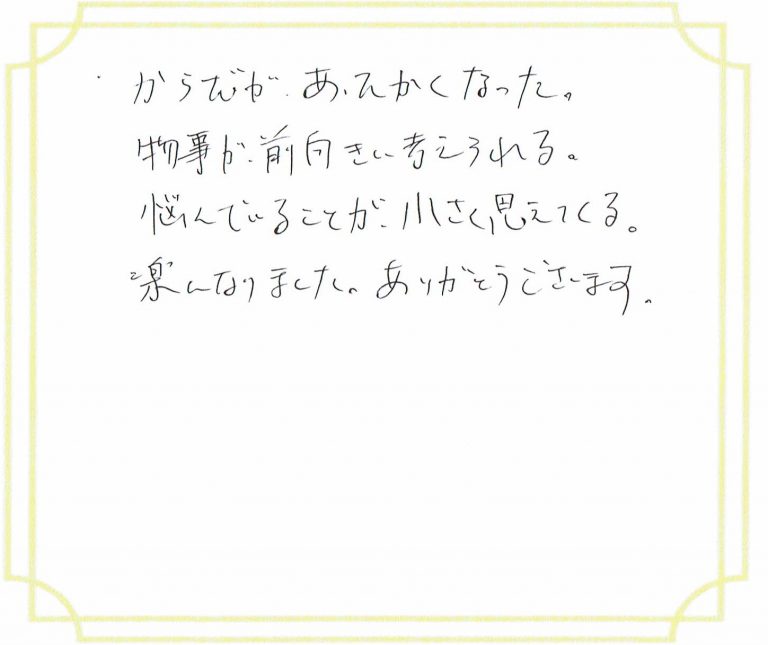 からだが、あったかくなった。
物事が、前向きに考えられる。
悩んでいることが、小さく思えてくる。
楽になりました。ありがとうございます。